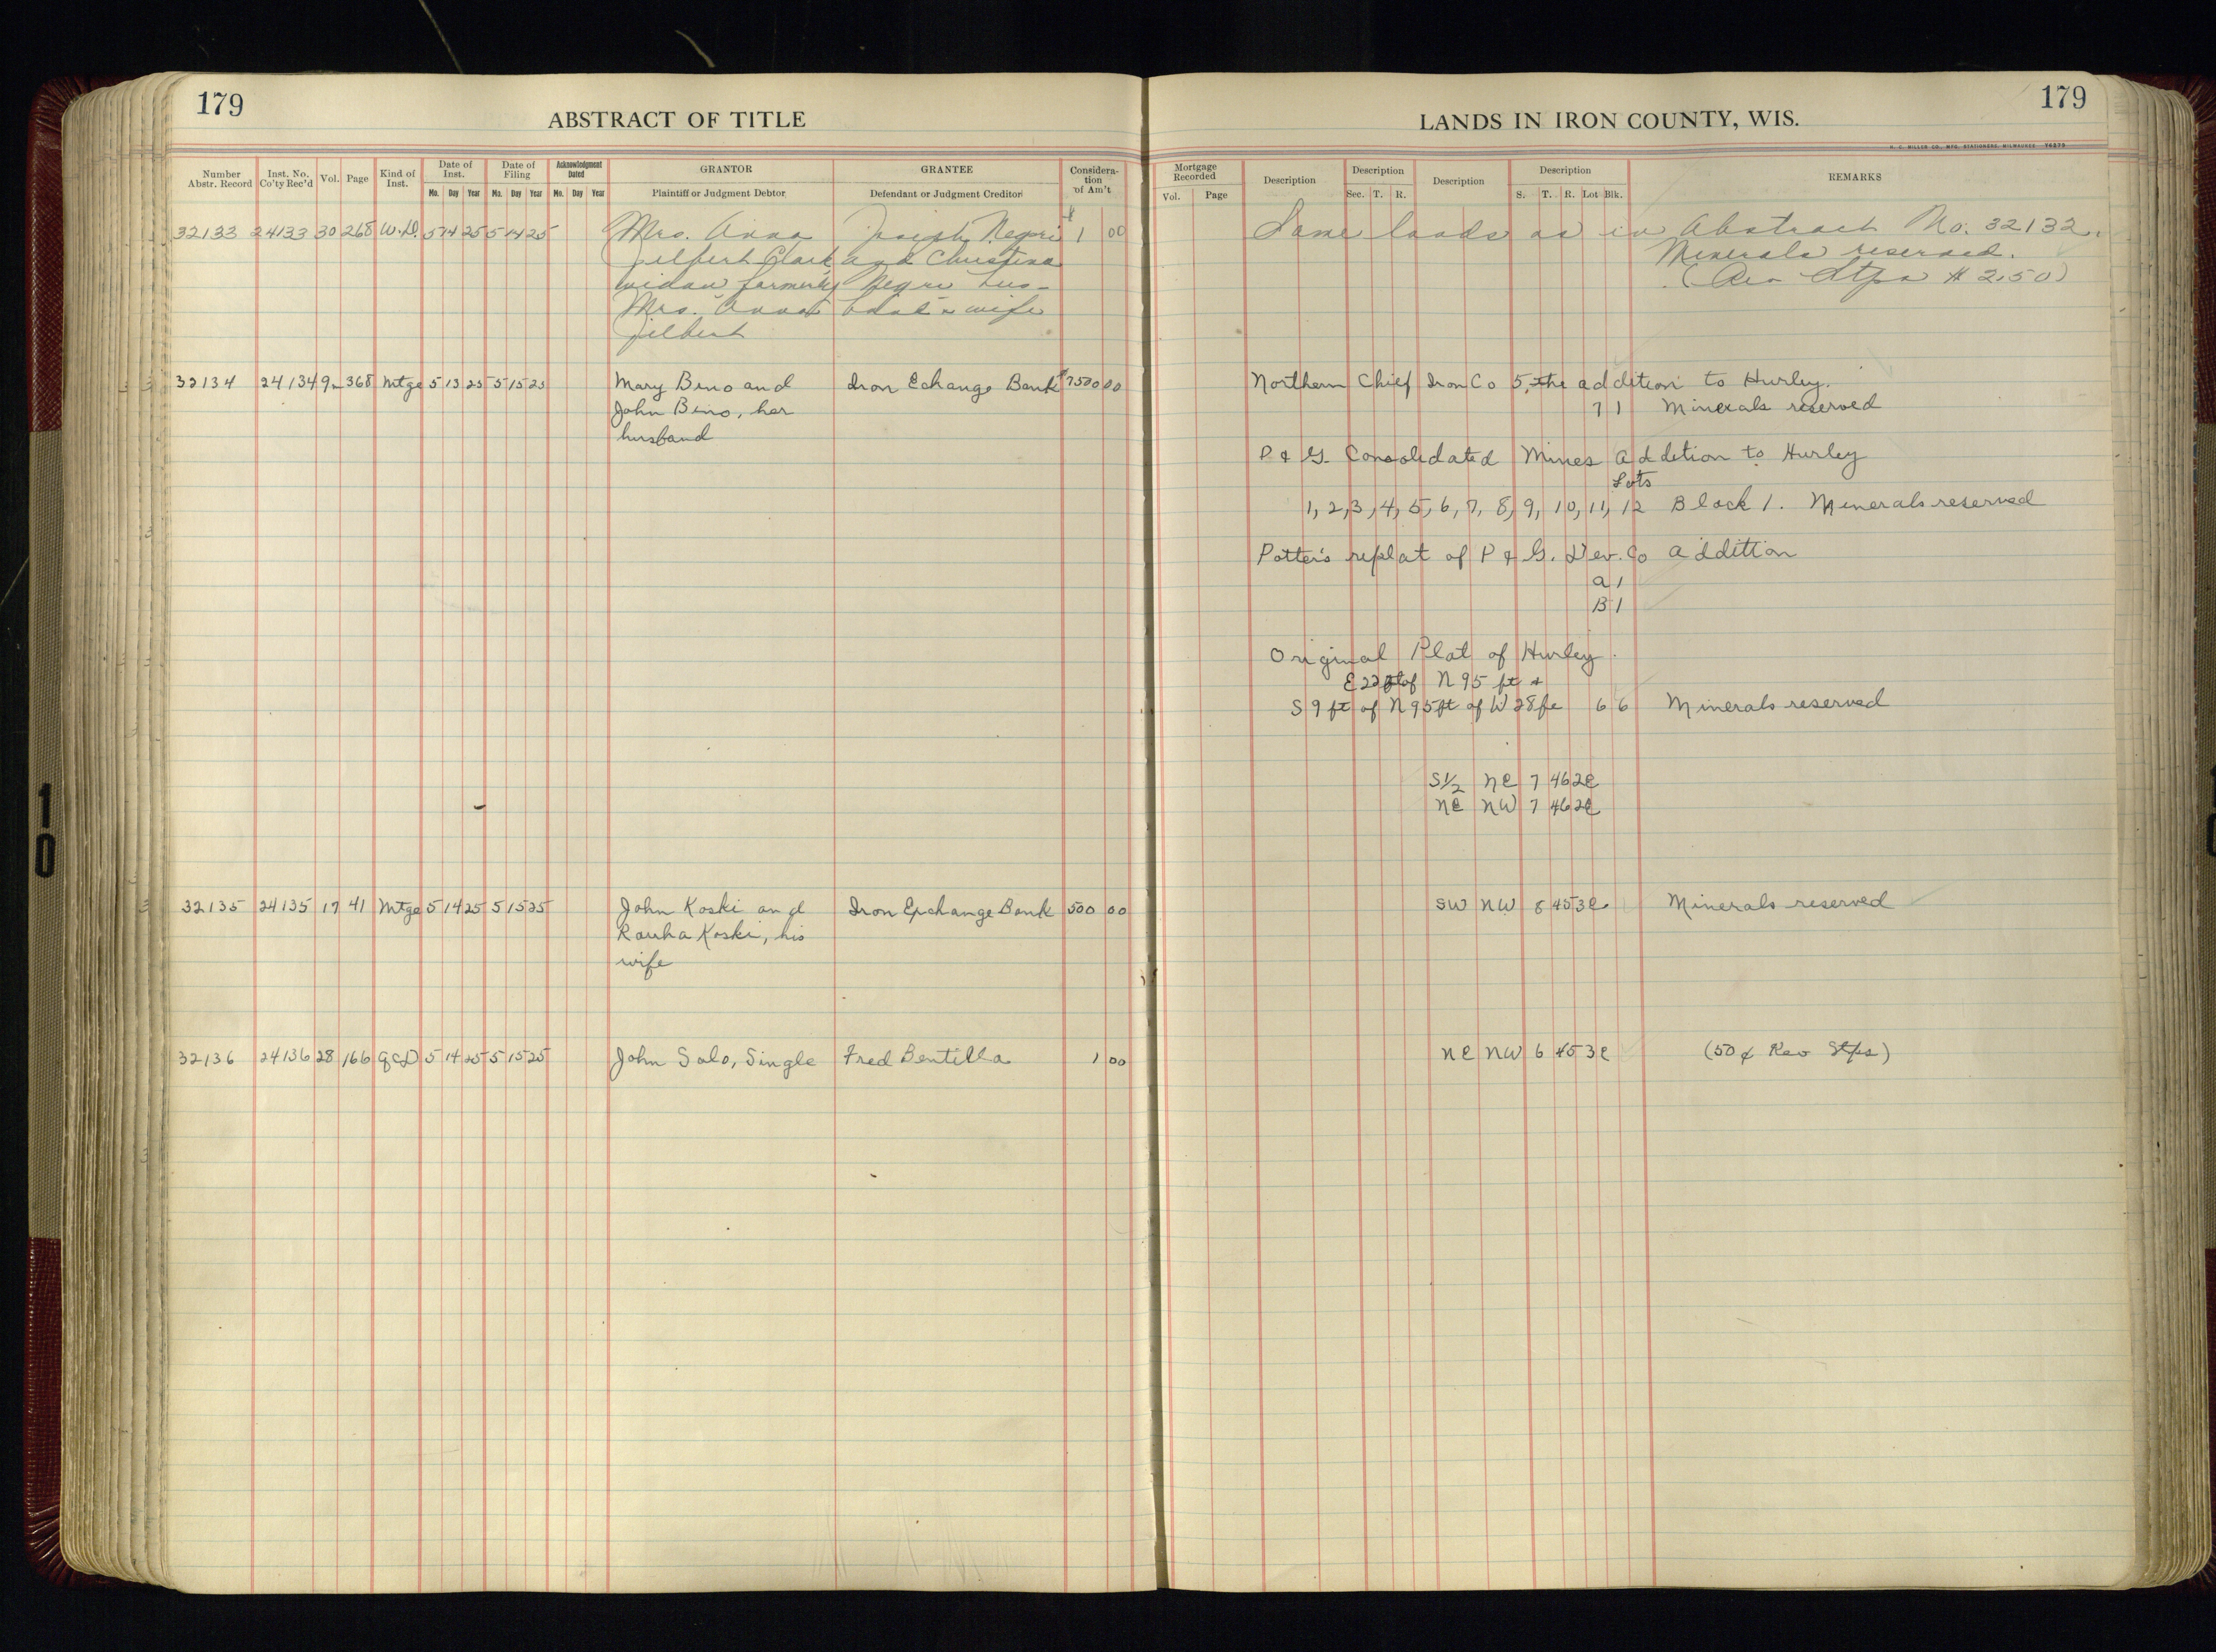 179
ABSTRACT OF TITLE
LANDS IN IRON COUNTY, WIS.
179
H. C. MILLER CO., MFG. STATIONERS, MILWAUKEE
Number Abstr. Record
Inst. No. Co'ty Rec'd
Vol.
Page
Kind of Inst.
Date of Inst.
Mo. Day Year
Date of Filing
Mo. Day Year
Acknowledgment Dated
Mo. Day Year
GRANTOR
Plaintiff or Judgment Debtor
GRANTEE
Defendant or Judgment Creditor
Considera-
tion
or Am't
Mortgage Recorded
Vol. Page
Description
Description
Sec. T. R.
Description
Description
S. T. R. Lot Blk.
REMARKS
32133 24133 30 268 W.D. 5 14 25 5 14 25 Mrs. Anna Joseph Negri $ 1 00 Same lands as in Abstract No. 32132.
Gilbert Clark and Christina Minerals reserved.
widow formerly Negri hus- (Rev Stps $2.50)
Mrs. Anna band & wife
Gilbert
32134 24134 9 368 Mtge 5 13 25 5 15 25 Mary Bino and Iron Echange Bank $7500 00 Northern Chief Iron Co 5, the addition to Hurley.
John Bino, her 7 1 Minerals reserved
husband
P & G. Consolidated Mines Addition to Hurley
Lots
1, 2, 3, 4, 5, 6, 7, 8, 9, 10, 11, 12 Block 1. Minerals reserved
Potter's replat of P & G. Dev. Co addition
A 1
B 1
Original Plat of Hurley.
E 22 ft of N 95 ft &
S 9 ft of N 95 ft of W 28 ft 6 6 Minerals reserved
S 1/2 NE 7 46 2E
NE NW 7 46 2E
32135 24135 17 41 Mtge 5 14 25 5 15 25 John Koski and Iron Exchange Bank 500 00 SW NW 8 45 3E. Minerals reserved
Rauha Koski, his
wife
32136 24136 28 166 QCD 5 14 25 5 15 25 John Salo, Single Fred Bentilla 1 00 NE NW 6 45 3E (50¢ Rev Stps)
10